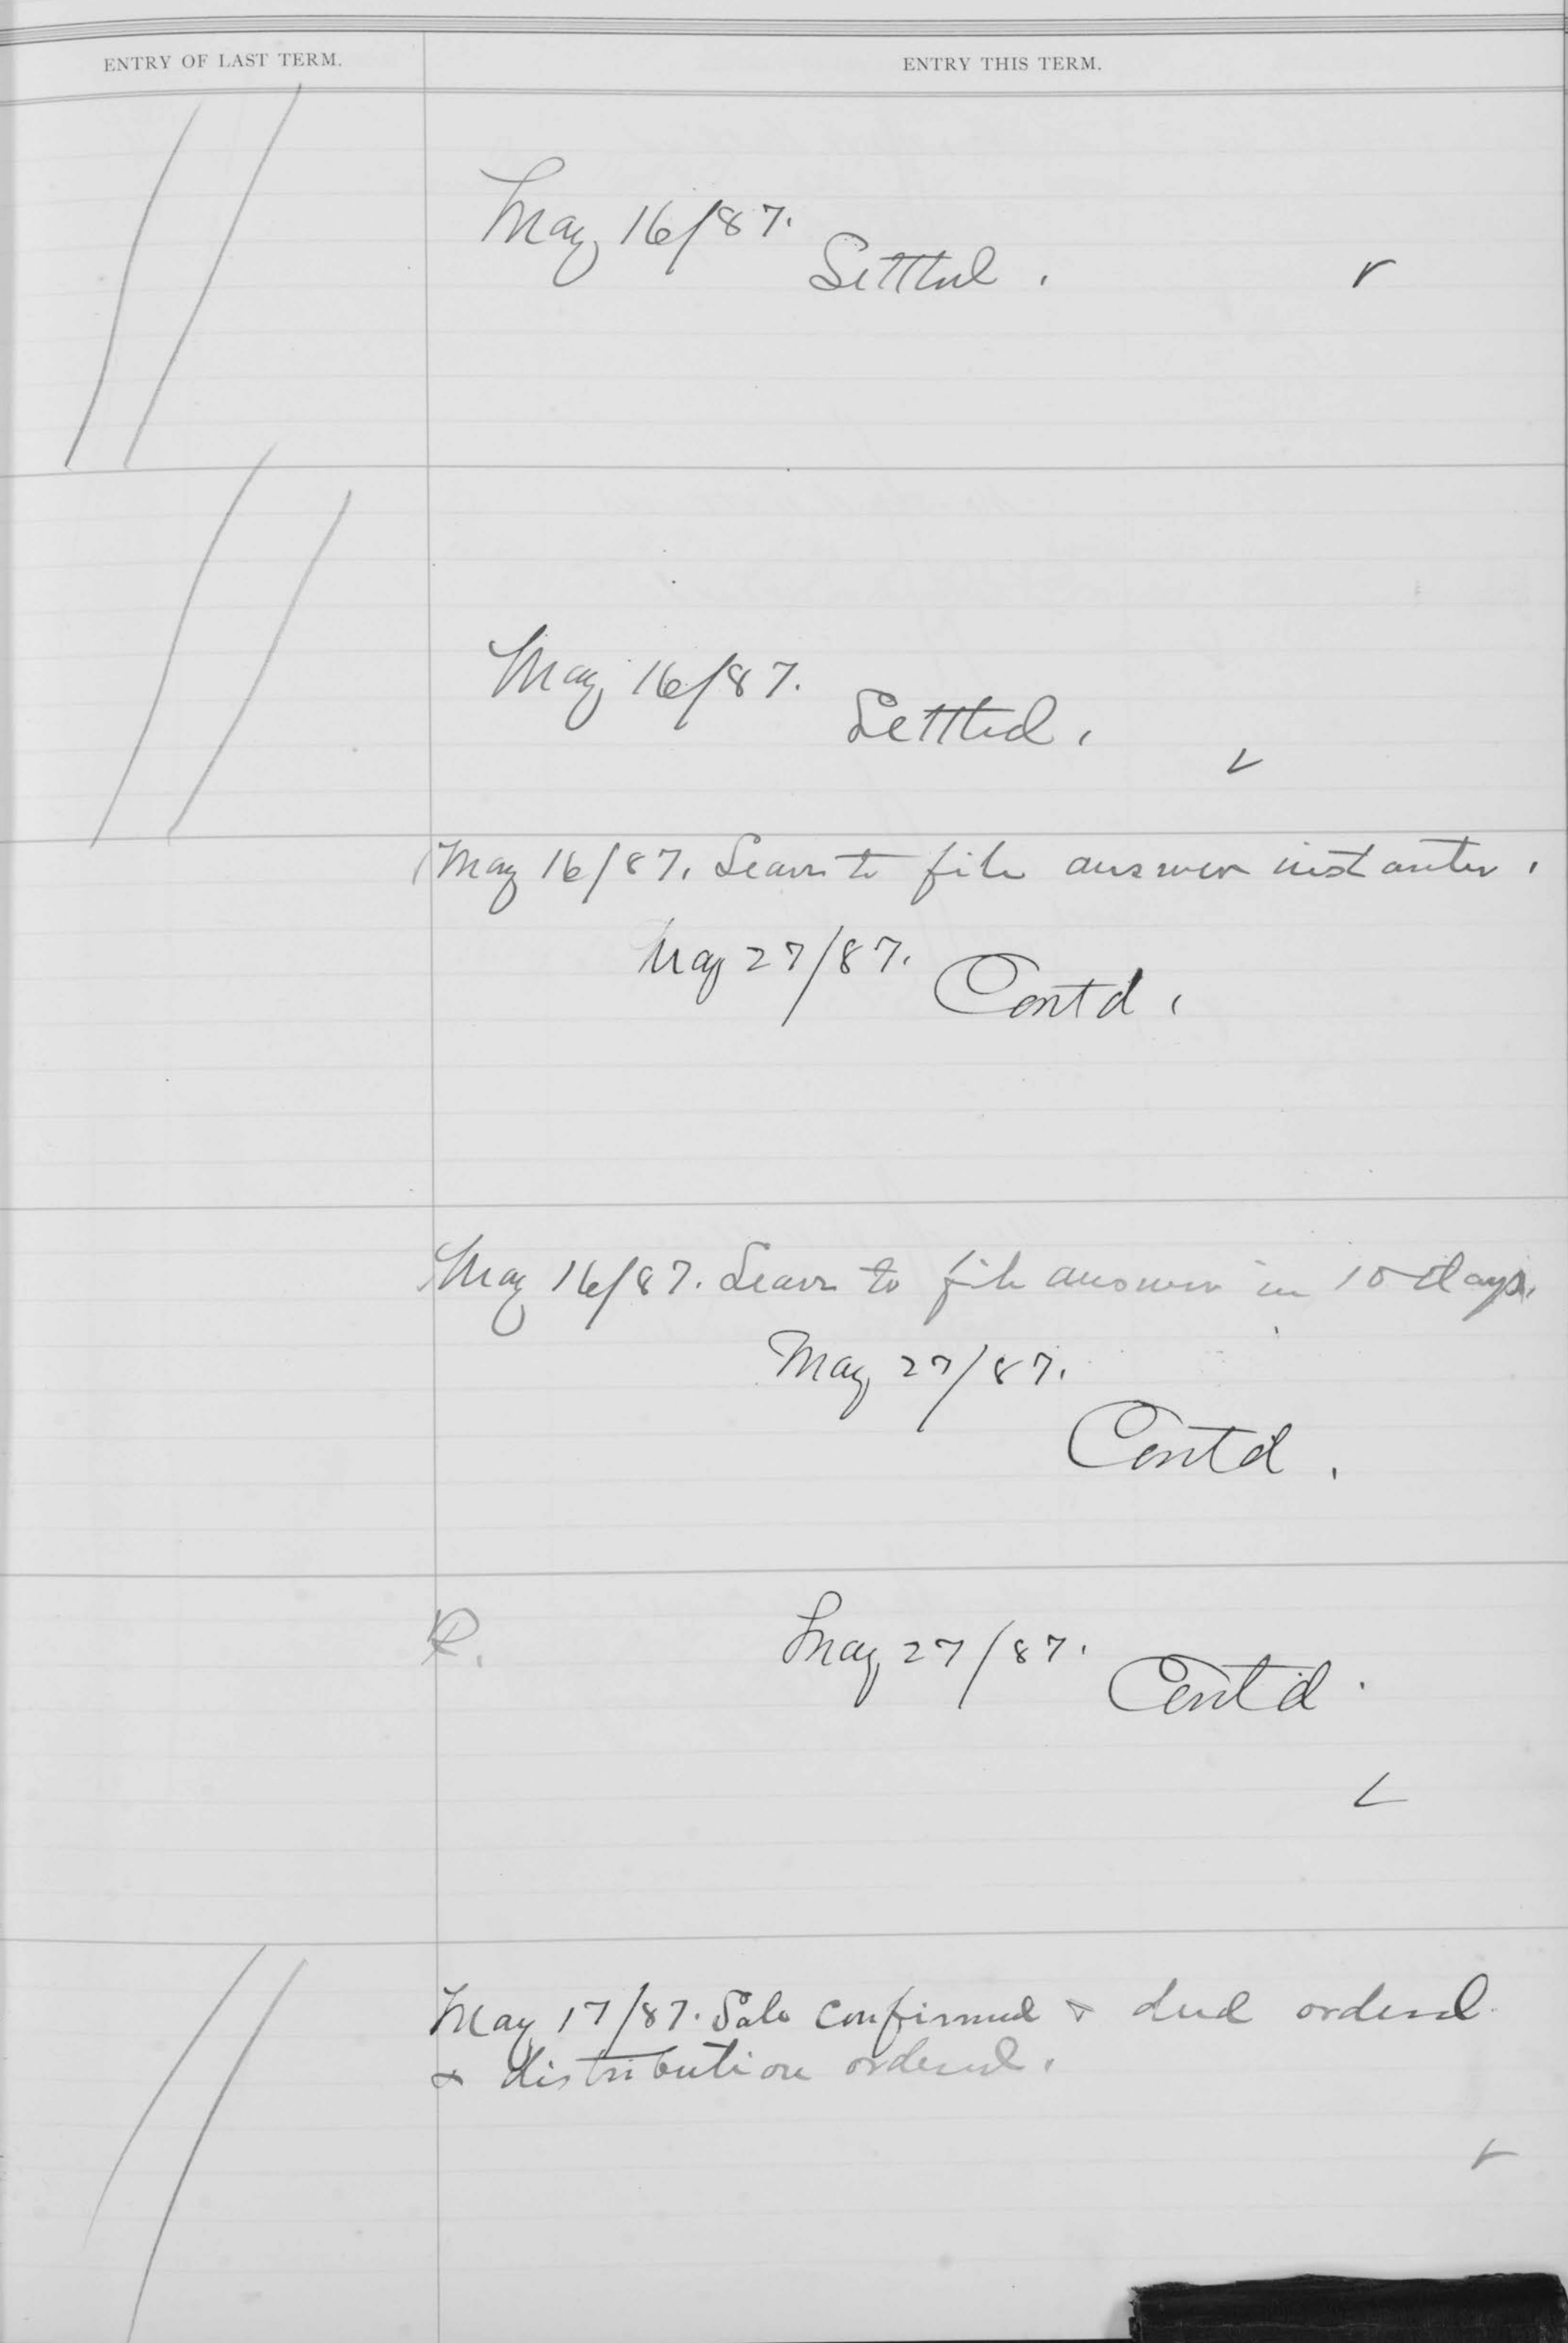 ENTRY OF LAST TERM.
ENTRY THIS TERM.
May 16/87.
Settled.
May 16/87.
Settled.
May 16/87. Leave to file answer instanter.
May 27/87.
Contd.
May 16/87. Leave to file answer in 10 days.
May 27/87.
Contd.
R.
May 27/87.
Cont'd.
May 17/87. Sale confirmed & deed ordered
& distribution ordered.